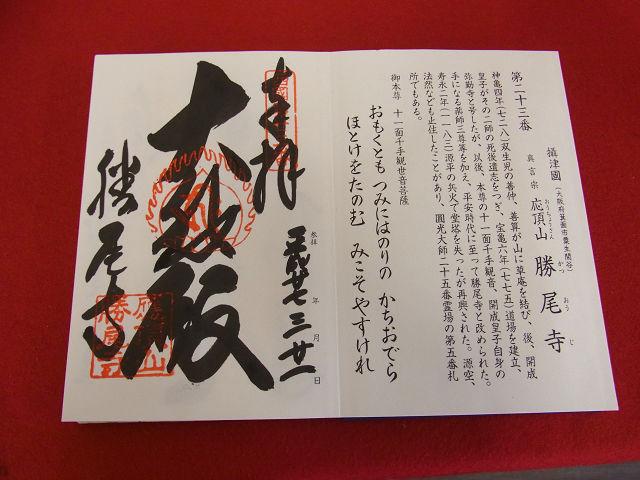 第二十三番
攝津國（大阪府箕面市粟生間谷）
真言宗 応頂山 勝尾寺
おうちょうざん かつおうじ
神亀四年（七二八）双生児の善仲、善算が山に草庵を結び、後、開成
皇子がその二師の死後遺志をつぎ、宝亀六年（七七五）道場を建立、
弥勒寺と号したが、以後、本尊の十一面千手観音、開成皇子自身の
手になる薬師三尊等を加え、平安時代に至って勝尾寺と改められた。
寿永二年（一一八三）源平の兵火で堂塔を失ったが再興された。源空、
法然なども止住したことがあり、圓光大師二十五番霊場の第五番札
所でもある。
御本尊 十一面千手観世音菩薩
おもくとも つみにはのりの かちおでら
ほとけをたのむ みこそやすけれ
奉拝
参拝 平成廿七年三月廿一日
大悲殿
勝尾寺